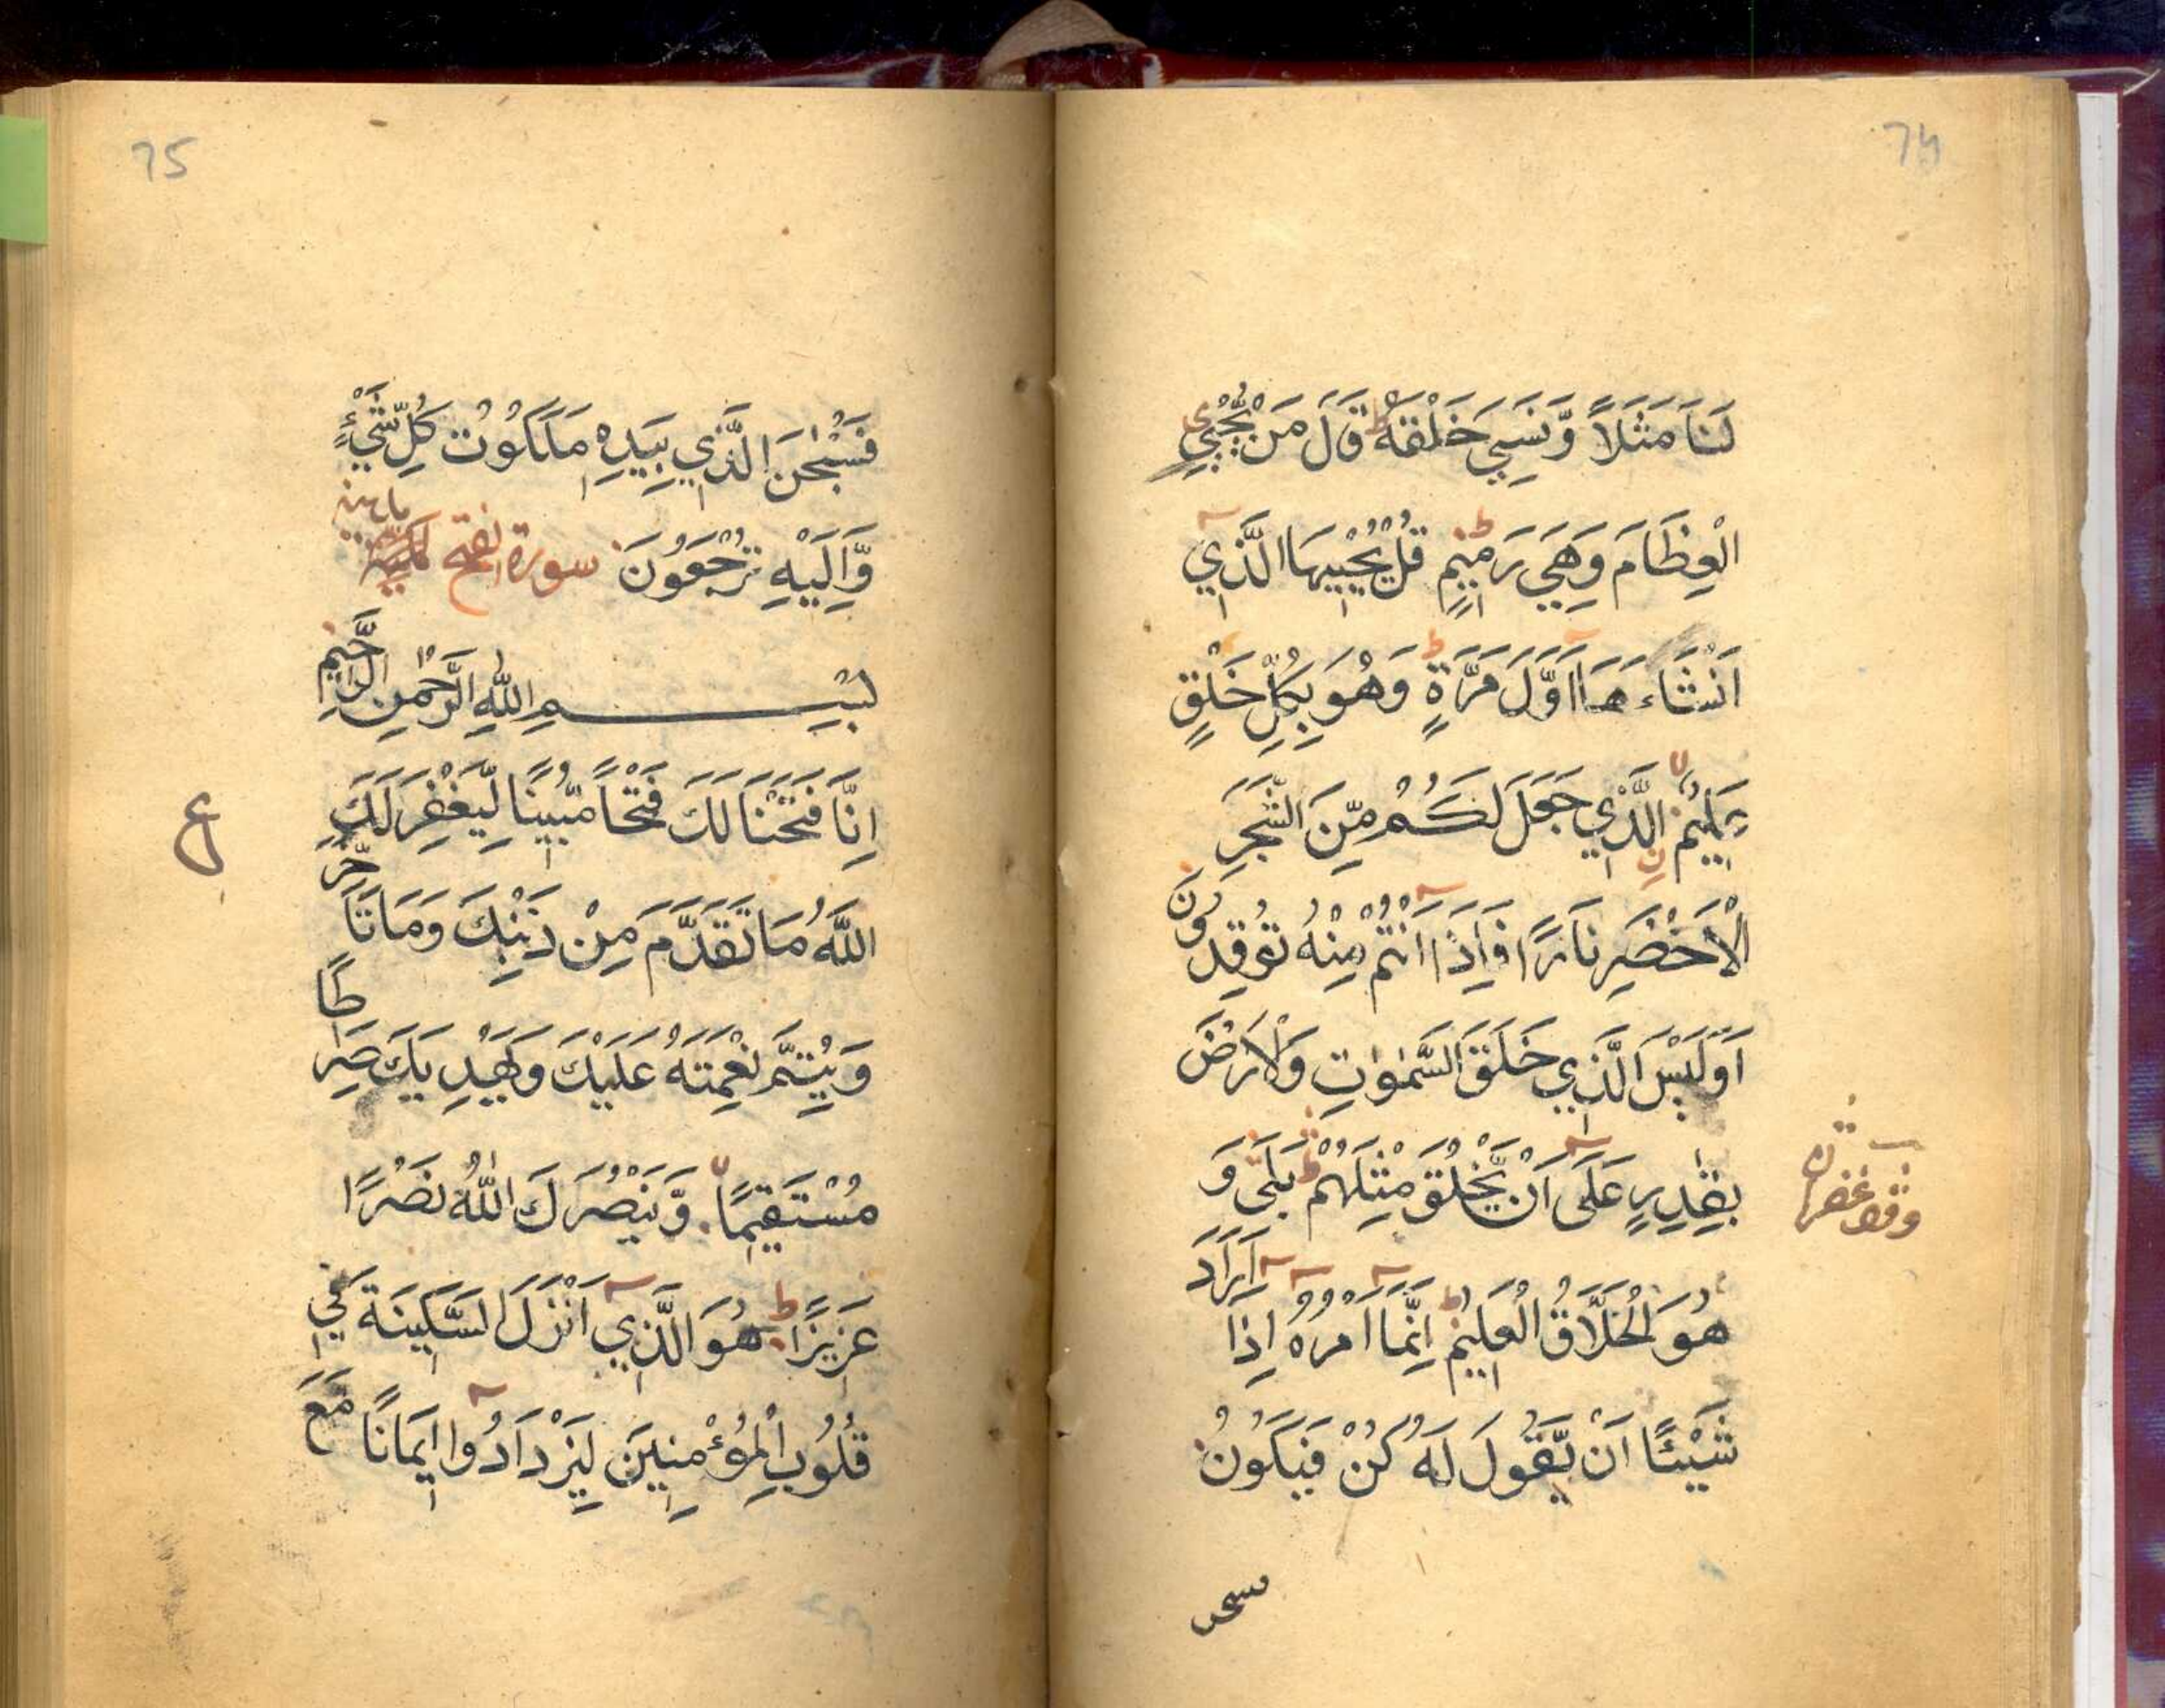 74
لَنَا مَثَلًا وَّنَسِيَ خَلْقَهٗ ط قَالَ مَنْ يُّحْيِي
الْعِظَامَ وَهِيَ رَمِيْمٌ قُلْ يُحْيِيْهَا الَّذِيْ
اَنْشَاءَهَا اَوَّلَ مَرَّةٍ ط وَهُوَ بِكُلِّ خَلْقٍ
عَلِيْمٌ الَّذِيْ جَعَلَ لَكُمْ مِّنَ الشَّجَرِ
الْاَخْضَرِ نَارًا فَاِذَا اَنْتُمْ مِنْهُ تُوْقِدُوْنَ
اَوَلَيْسَ الَّذِيْ خَلَقَ السَّمٰوٰتِ وَالْاَرْضَ
بِقٰدِرٍ عَلٰى اَنْ يَّخْلُقَ مِثْلَهُمْ ط بَلٰى وَ
هُوَ الْخَلَّاقُ الْعَلِيْمُ اِنَّمَا اَمْرُهٗ اِذَا اَرَادَ
شَيْئًا اَنْ يَّقُوْلَ لَهٗ كُنْ فَيَكُوْنُ
75
فَسُبْحٰنَ الَّذِيْ بِيَدِهٖ مَلَكُوْتُ كُلِّ شَيْءٍ
وَّاِلَيْهِ تُرْجَعُوْنَ سورة الفتح
بِسْمِ اللّٰهِ الرَّحْمٰنِ الرَّحِيْمِ
اِنَّا فَتَحْنَا لَكَ فَتْحًا مُّبِيْنًا لِّيَغْفِرَ لَكَ
ع
اللّٰهُ مَا تَقَدَّمَ مِنْ ذَنْبِكَ وَمَا تَاَخَّرَ
وَيُتِمَّ نِعْمَتَهٗ عَلَيْكَ وَيَهْدِيَكَ صِرَاطًا
مُّسْتَقِيْمًا وَّيَنْصُرَكَ اللّٰهُ نَصْرًا
عَزِيْزًا ط هُوَ الَّذِيْ اَنْزَلَ السَّكِيْنَةَ فِيْ
قُلُوْبِ الْمُؤْمِنِيْنَ لِيَزْدَادُوْا اِيْمَانًا مَّعَ